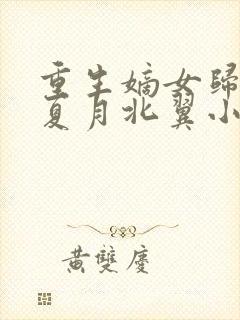 重生嫡女歸
夏月北翼小
黃雙慶